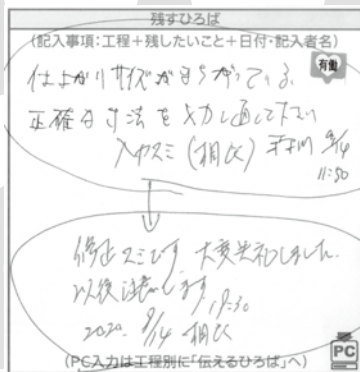 残すひろば
(記入事項:工程+残したいこと+日付・記入者名)
有働
仕上がりサイズがまちがっている。
正確な寸法を入力し直して下さい
入力スミ(相区) 8/14
11:50
修正スミです。大変失礼しました。
以後注意します。
2020. 8/14 相区
(PC入力は工程別に「伝えるひろば」へ)
PC